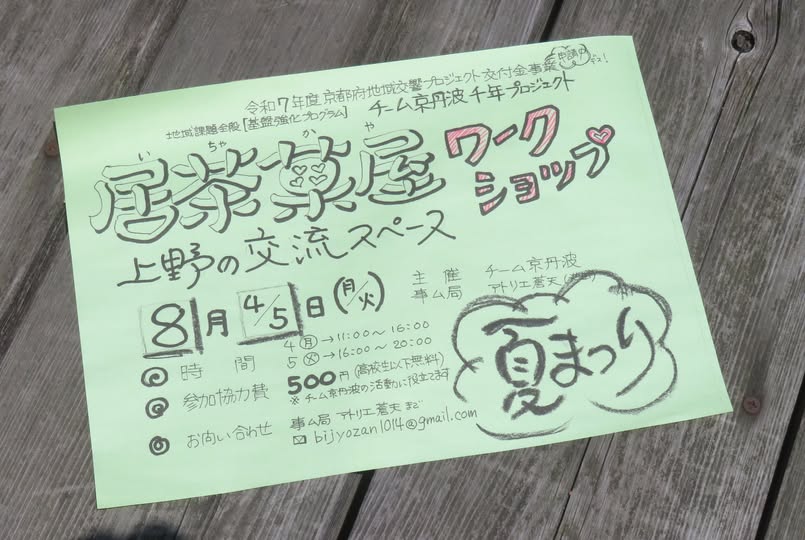 令和7年度 京都府地域交響プロジェクト 交付金事業 申請中デス！
地域課題全般 [基盤強化プログラム] チーム京丹波 千年プロジェクト
い ちゃ か や
居茶菓屋 ワークショップ
上野の交流スペース
8月 4/5日 (月/火)
主催 チーム京丹波
事ム局 アトリエ蒼天
◎ 時間 4(月)→11:00〜16:00
5(火)→16:00〜20:00
◎ 参加協力費 500円(高校生以下無料)
※チーム京丹波の活動に役立てます
◎ お向い合わせ 事ム局 アトリエ蒼天まで
✉ bijyozan1014@gmail.com
夏まつり